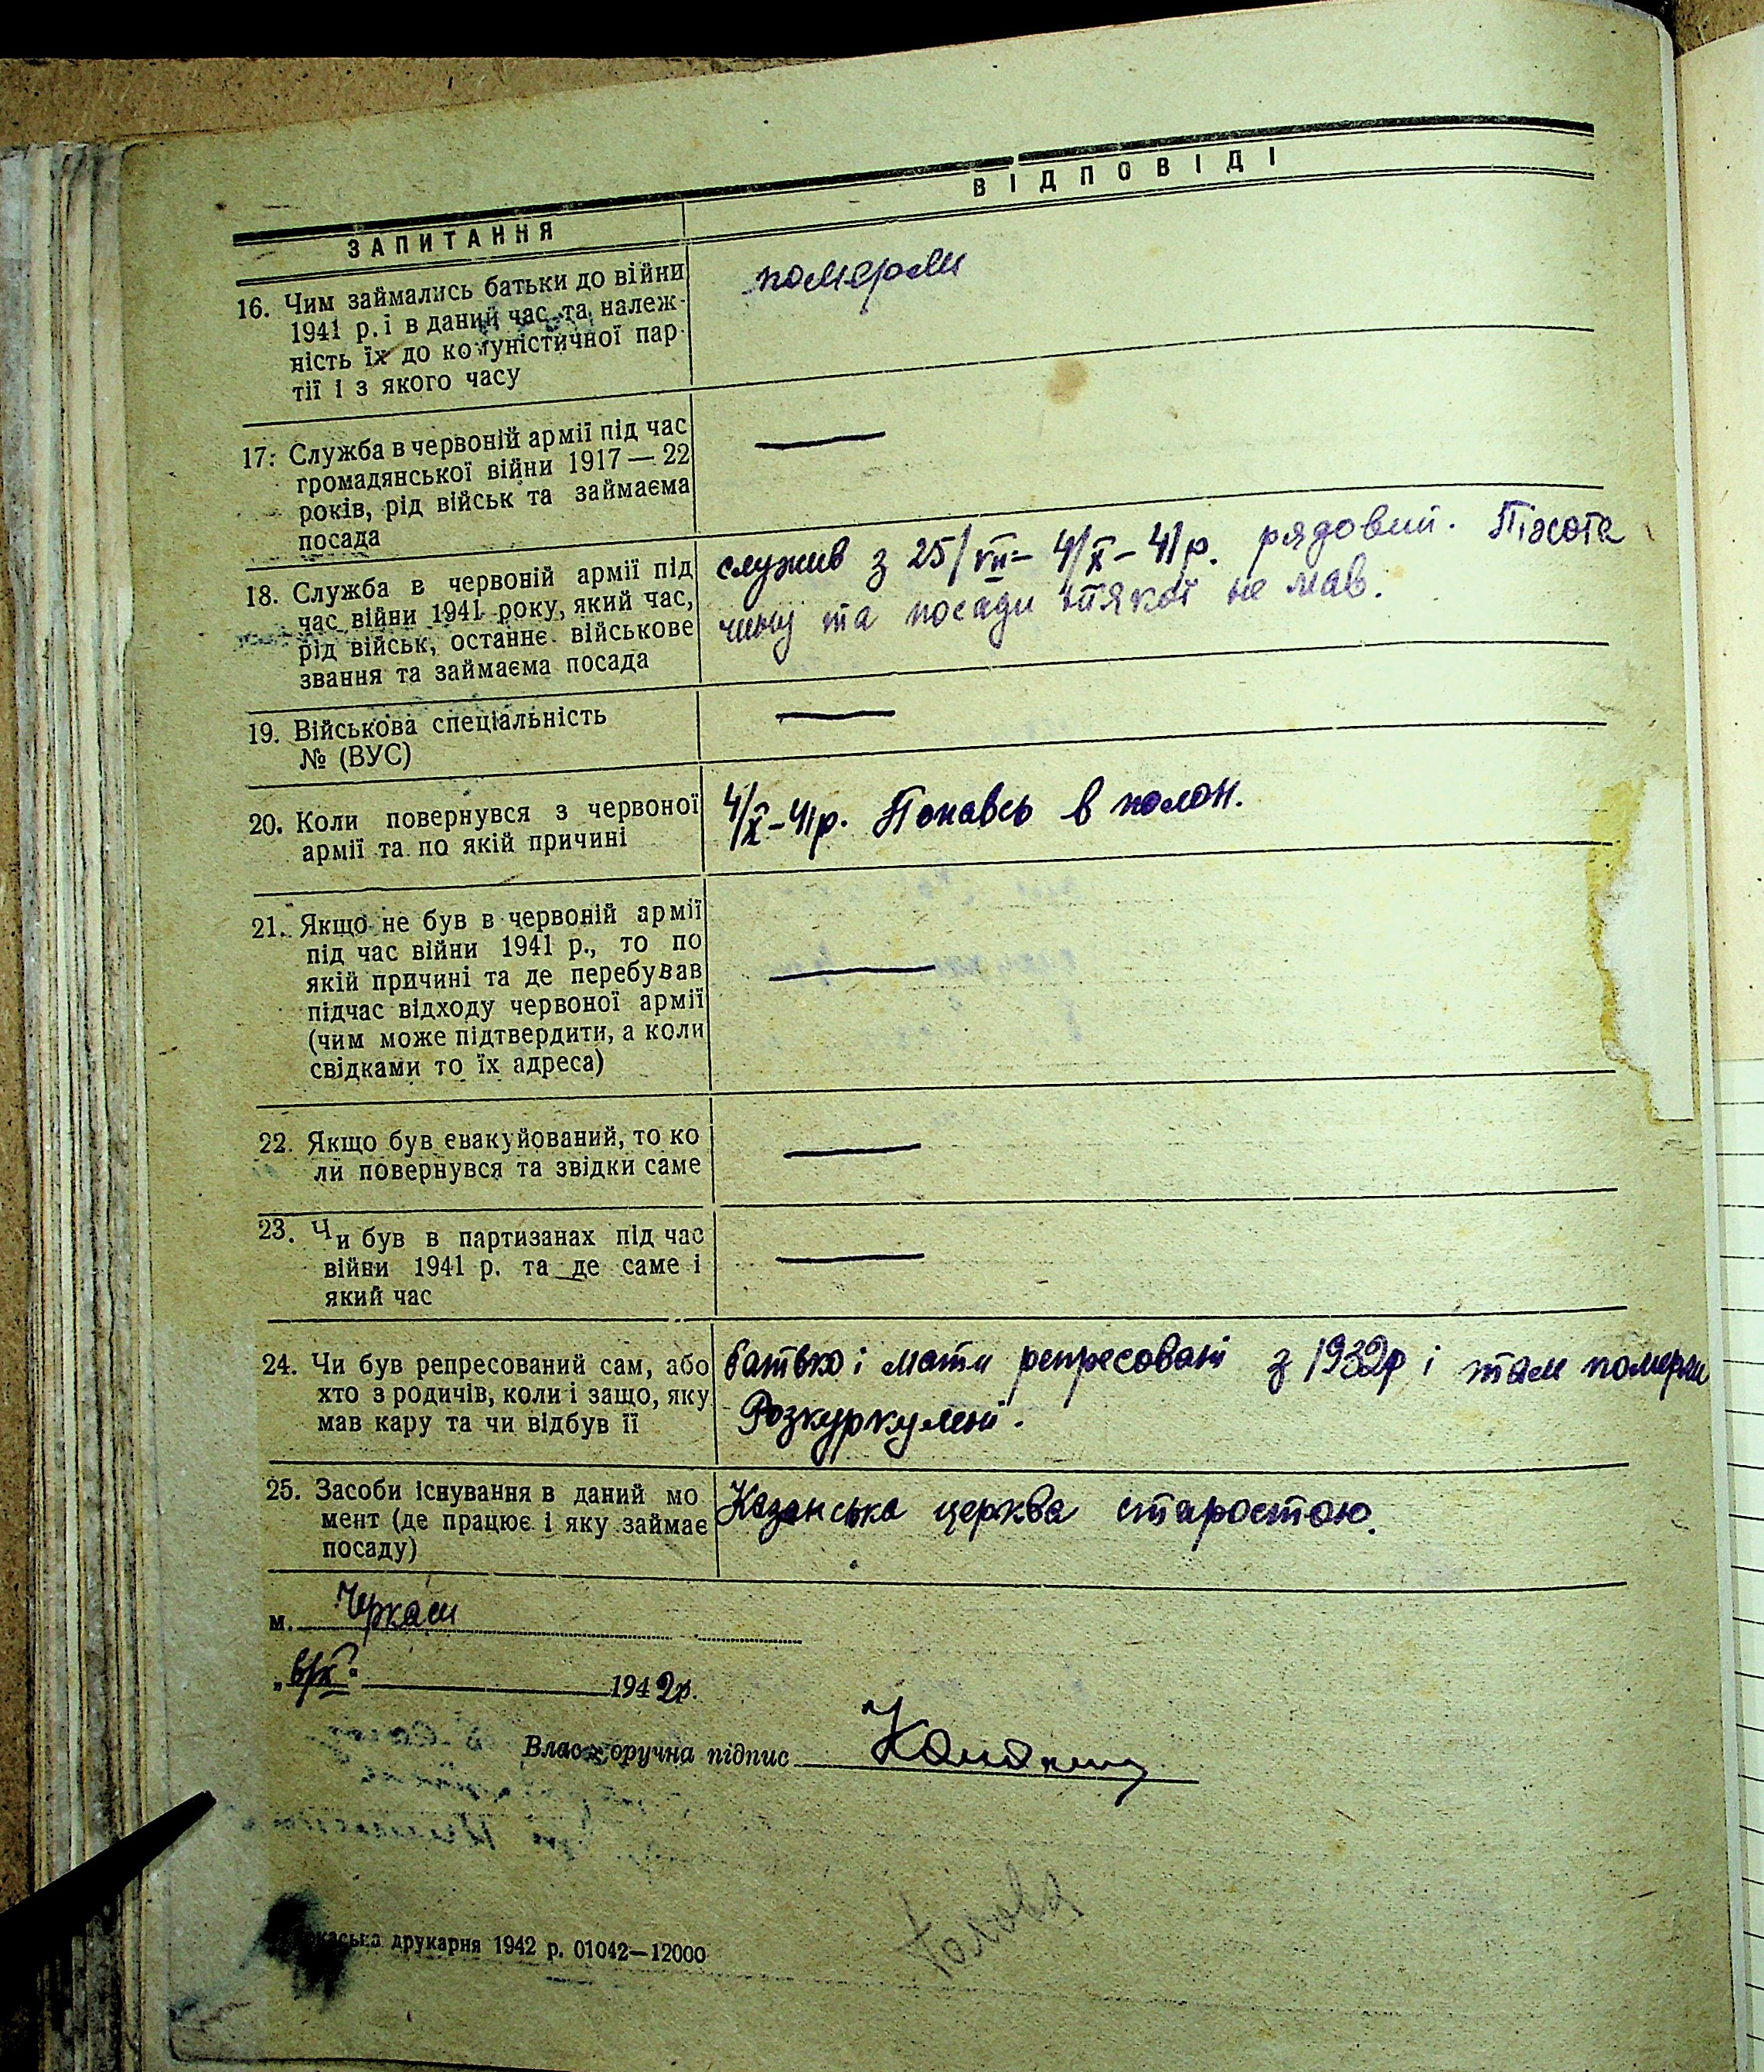 ЗАПИТАННЯ
ВІДПОВІДІ
16. Чим займались батьки до війни
1941 р. і в даний час та належ-
ність їх до комуністичної пар-
тії і з якого часу
померли
17. Служба в червоній армії під час
громадянської війни 1917—22
років, рід військ та займаєма
посада
—
18. Служба в червоній армії під
час війни 1941 року, який час,
рід військ, останнє військове
звання та займаєма посада
служив з 25/VII– 4/X–41р. рядовий. Піхота
чину та посади ніякої не мав.
19. Військова спеціальність
№ (ВУС)
—
20. Коли повернувся з червоної
армії та по якій причині
4/X–41р. Попавсь в полон.
21. Якщо не був в червоній армії
під час війни 1941 р., то по
якій причині та де перебував
підчас відходу червоної армії
(чим може підтвердити, а коли
свідками то їх адреса)
—
22. Якщо був евакуйований, то ко
ли повернувся та звідки саме
—
23. Чи був в партизанах під час
війни 1941 р. та де саме і
який час
—
24. Чи був репресований сам, або
хто з родичів, коли і защо, яку
мав кару та чи відбув її
батько і мати репресовані з р і там померли
Розкуркулені.
25. Засоби існування в даний мо
мент (де працює і яку займає
посаду)
Казанська церква старостою.
м. Черкаси
1942р.
Власноручна підпис
Голова
каська друкарня 1942 р. 01042—12000